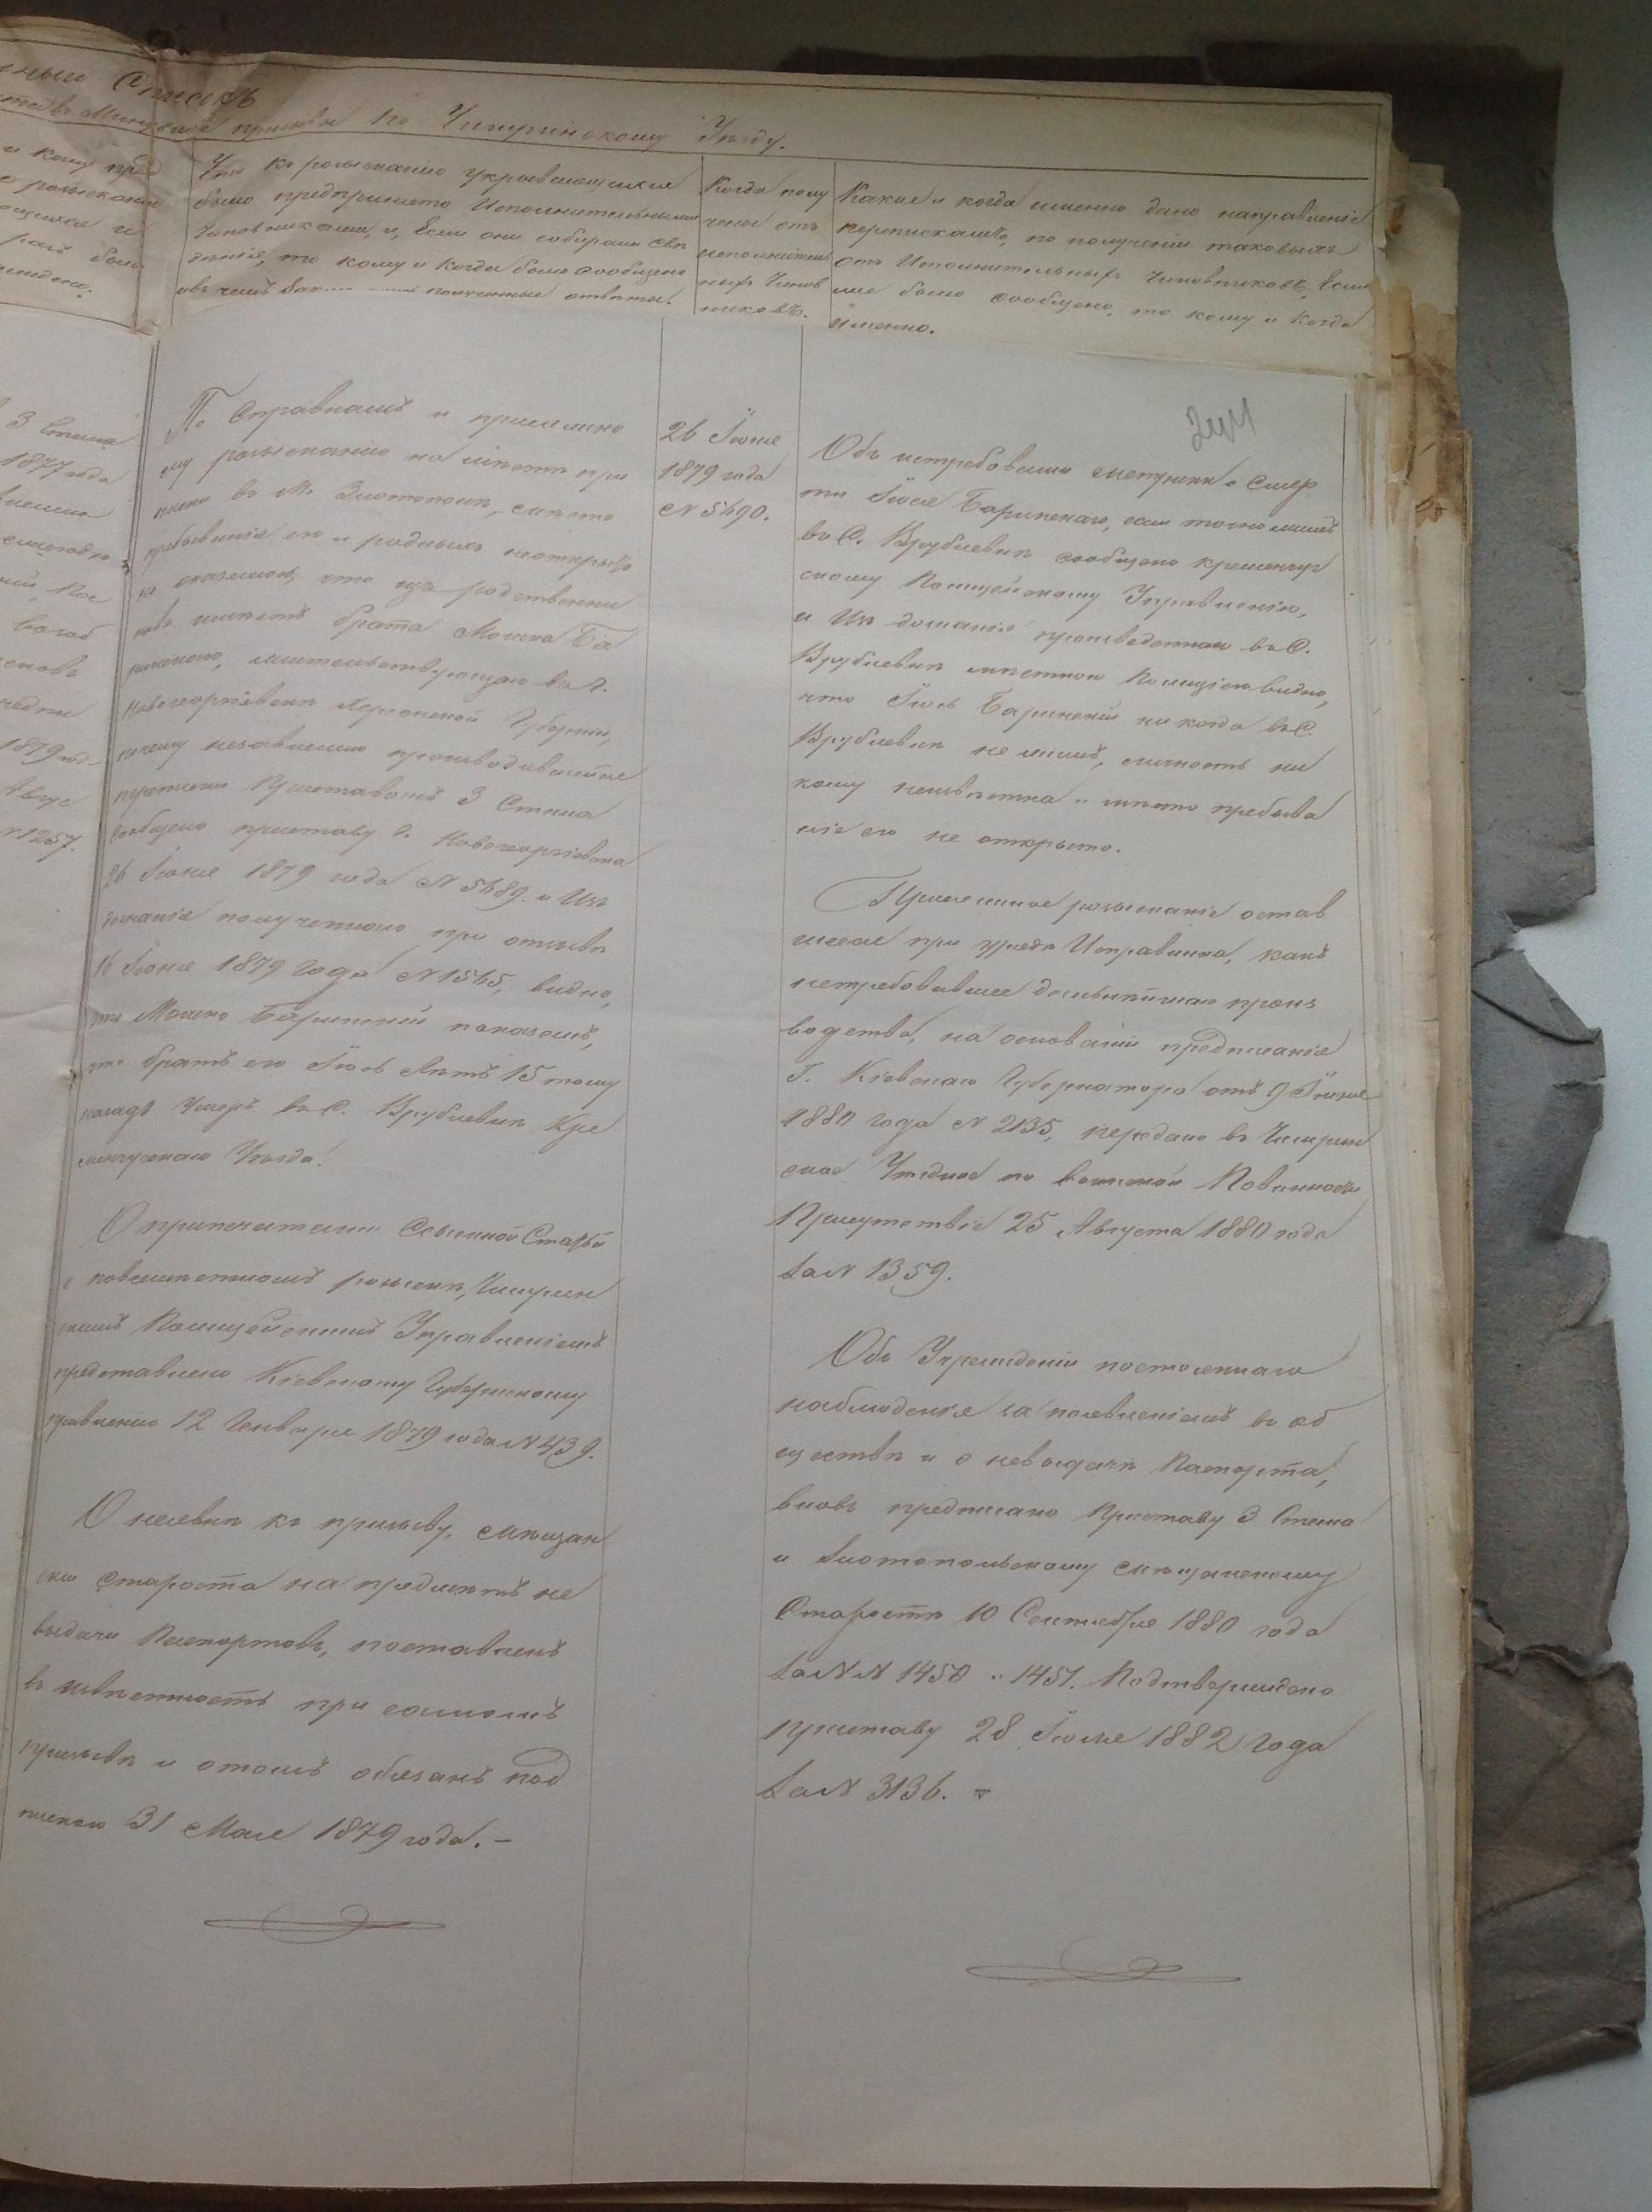 Списокъ
призыва по Чигиринскому Уѣзду.
и кому пред
розыскани
Что къ розысканію укрывающихся
было предпринято Исполнительными
Чиновниками, и, Если они собирали свѣ
дѣнія, то кому и когда было сообщено
полученные отвѣты.
Когда полу
чены отъ
исполнитель
ныхъ Чинов
никовъ.
Какое и когда именно дано направленіе
перепискамъ, по полученіи таковыхъ
отъ Исполнительныхъ Чиновниковъ, Если
же было сообщено, то кому и когда
именно.
3 Стана
1877 года
1879 год
Авгус
№ 1257.
По справкамъ и
му розысканію на мѣстѣ при
писки въ М. Златополѣ, мѣсто
пребыванія его и родныхъ неоткрыто
но оказалось, что изъ родственни
ковъ имѣетъ брата Мошка Ба
ринскаго, жительствующаго въ г.
Новогеоргіевскѣ Херсонской Губерніи,
почему независимо производившейся
переписки Приставомъ 3 Стана
сообщено приставу г. Новогеоргіевска
26 Іюня 1879 года № 5489. и Изъ
дознанія полученнаго при отзывѣ
16 Іюня 1879 года № 1545, видно,
что Мошко Баринскій показалъ,
что братъ его Іось лѣтъ 15 тому
назадъ умеръ въ С. Врублевкѣ Кре
менчугскаго Уѣзда.
О припечатаніи Сыскной Статьи
о повсемѣстномъ розыскѣ, Чигирин
скимъ Полицейскимъ Управленіемъ
представлено Кіевскому Губернскому
правленію 12 Генваря 1879 года № 439.
О неявкѣ къ призыву, мѣщан
скій староста на предметъ не
выдачи Паспортовъ, поставленъ
въ извѣстность при самомъ
призывѣ и отомъ обязанъ под
пискою 31 Мая 1879 года. –
26 Іюня
1879 года
№ 5490.
Объ истребованіи метрики о смер
ти Іося Баринскаго, если точно
въ С. Врублевкѣ сообщено Кременчуг
скому Полицейскому Управленію,
и Изъ дознанія произведеннаго въ С.
Врублевкѣ мѣстною Полиціею видно,
что Іось Баринскій никогда въ С.
Врублевкѣ не жилъ, личность ни
кому неизвѣстна и мѣсто пребыва
нія его не открыто.
розысканіе остав
шееся при Исправника, какъ
нетребовавшее дальнѣйшаго произ
водства, на основаніи предписанія
Г. Кіевскаго Губернатора отъ 9 Іюня
1880 года № 2135, передано въ Чигирин
ское Уѣздное по воинской Повинности
Присутствіе 25 Августа 1880 года
за № 1359.
Объ Учрежденіи постояннаго
наблюденія за появленіемъ въ об
ществѣ и о невыдачѣ Паспорта,
вновь предписано Приставу 3 Стана
и Златопольскому мѣщанскому
Старостѣ 10 Сентября 1880 года
за №№ 1450 и 1451. Подтверждено
приставу 28 Іюля 1882 года
за № 3136. –